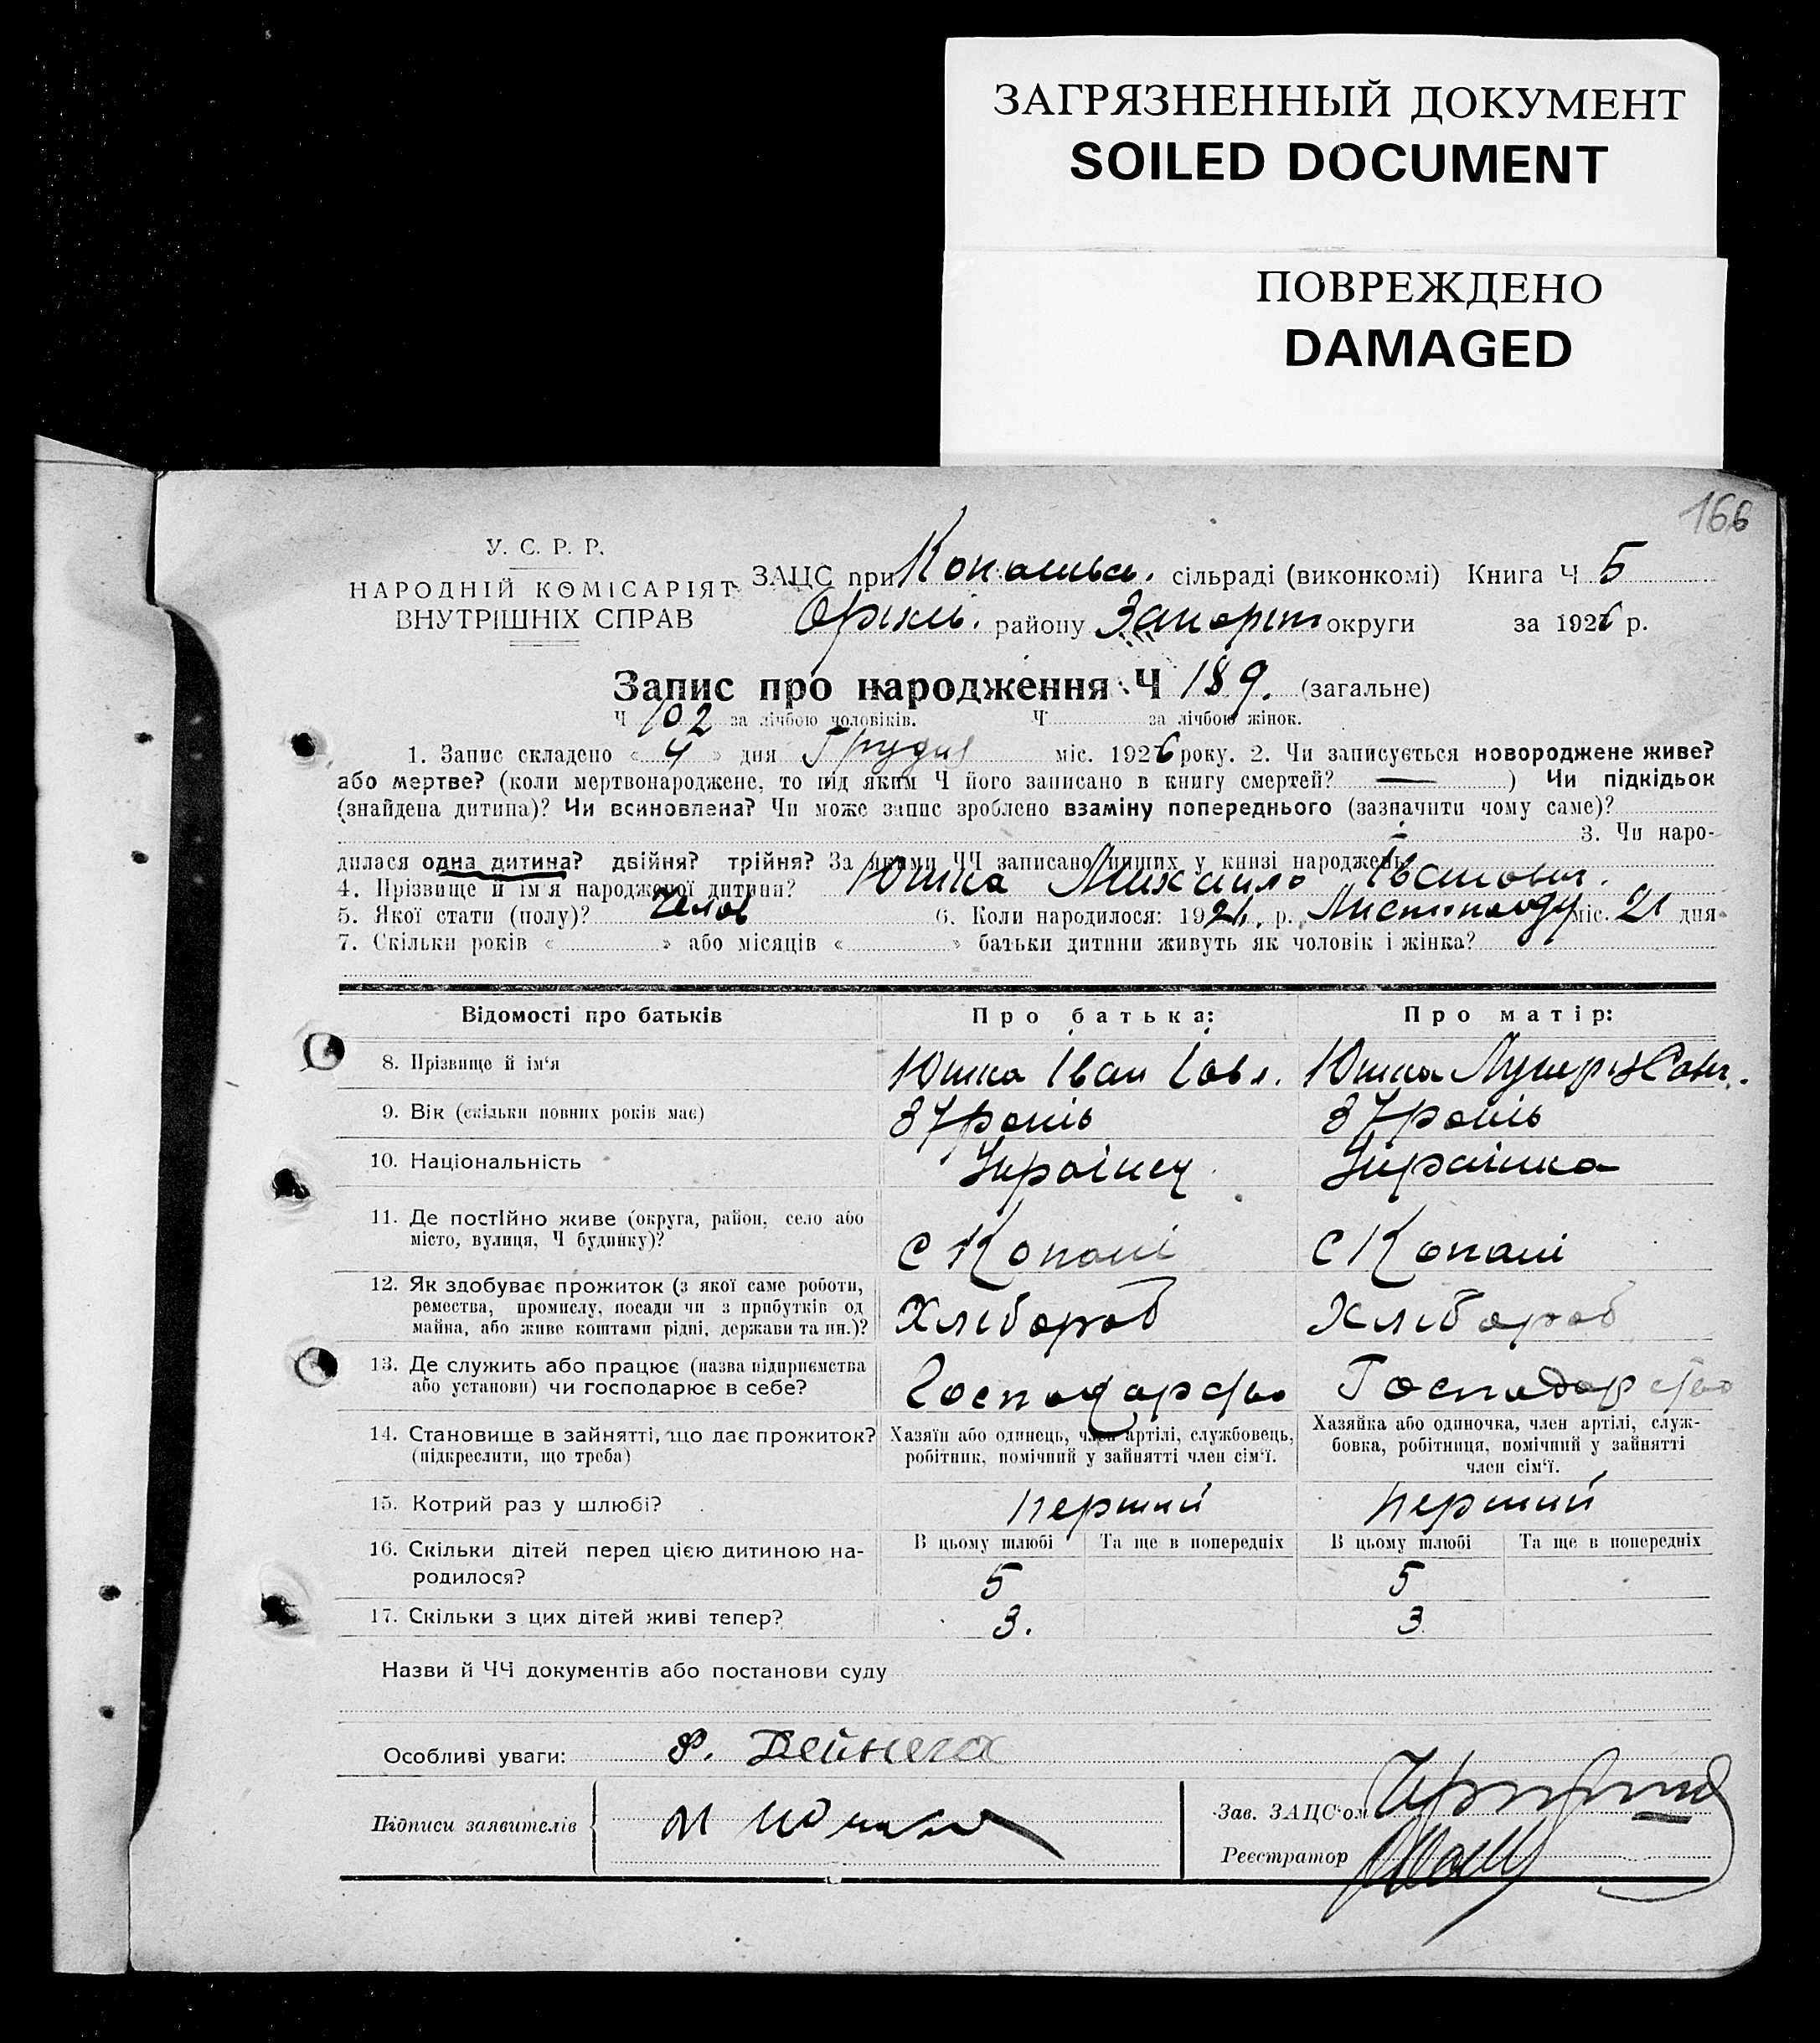 ЗАГРЯЗНЕННЫЙ ДОКУМЕНТ
SOILED DOCUMENT
ПОВРЕЖДЕНО
DAMAGED
166
У. С. Р. Р.
НАРОДНІЙ КОМІСАРІЯТ
ВНУТРІШНІХ СПРАВ
ЗАЦС при сільраді (виконкомі) Книга Ч 5
району округи за 1926 р.
Запис про народження Ч 189. (загальне)
Ч 102 за лічбою чоловіків. Ч за лічбою жінок.
1. Запис складено « 4 » дня Грудня міс. 1926 року. 2. Чи записується новороджене живе?
або мертве? (коли мертвонароджене, то під яким Ч його записано в книгу смертей? — ) Чи підкідьок
(знайдена дитина)? Чи всиновлена? Чи може запис зроблено взаміну попереднього (зазначити чому саме)?
3. Чи наро-
дилася одна дитина? двійня? трійня? За якими ЧЧ записано инших у книзі народжень
4. Прізвище й ім'я народженої дитини? Юшка Михайло Іванович.
5. Якої стати (полу)? Чолов 6. Коли народилося: 192 р. Листопаду міс. 21 дня
7. Скільки років « » або місяців « » батьки дитини живуть як чоловік і жінка?
Відомості про батьків Про батька: Про матір:
8. Прізвище й ім'я Юшка Іван Юшка
9. Вік (скільки повних років має) 37 років 37 років
10. Національність Українец Українка
11. Де постійно живе (округа, район, село або
місто, вулиця, Ч будинку)? с Копані с Копані
12. Як здобуває прожиток (з якої саме роботи,
ремества, промислу, посади чи з прибутків од
майна, або живе коштами рідні, держави та ин.)? Хлібороб Хлібороб
13. Де служить або працює (назва підприємства
або установи) чи господарює в себе? Господарство Господарство
14. Становище в зайнятті, що дає прожиток?
(підкреслити, що треба)
Хазяїн або одинець, член артілі, службовець,
робітник, помічний у зайнятті член сім'ї.
Хазяйка або одиночка, член артілі, служ-
бовка, робітниця, помічний у зайнятті
член сім'ї.
15. Котрий раз у шлюбі? перший перший
16. Скільки дітей перед цією дитиною на-
родилося?
В цьому шлюбі Та ще в попередніх В цьому шлюбі Та ще в попередніх
5 5
17. Скільки з цих дітей живі тепер? 3. 3
Назви й ЧЧ документів або постанови суду
Особливі уваги: Ф. Дейнега
Підписи заявителів
Зав. ЗАЦС'ом
Реєстратор